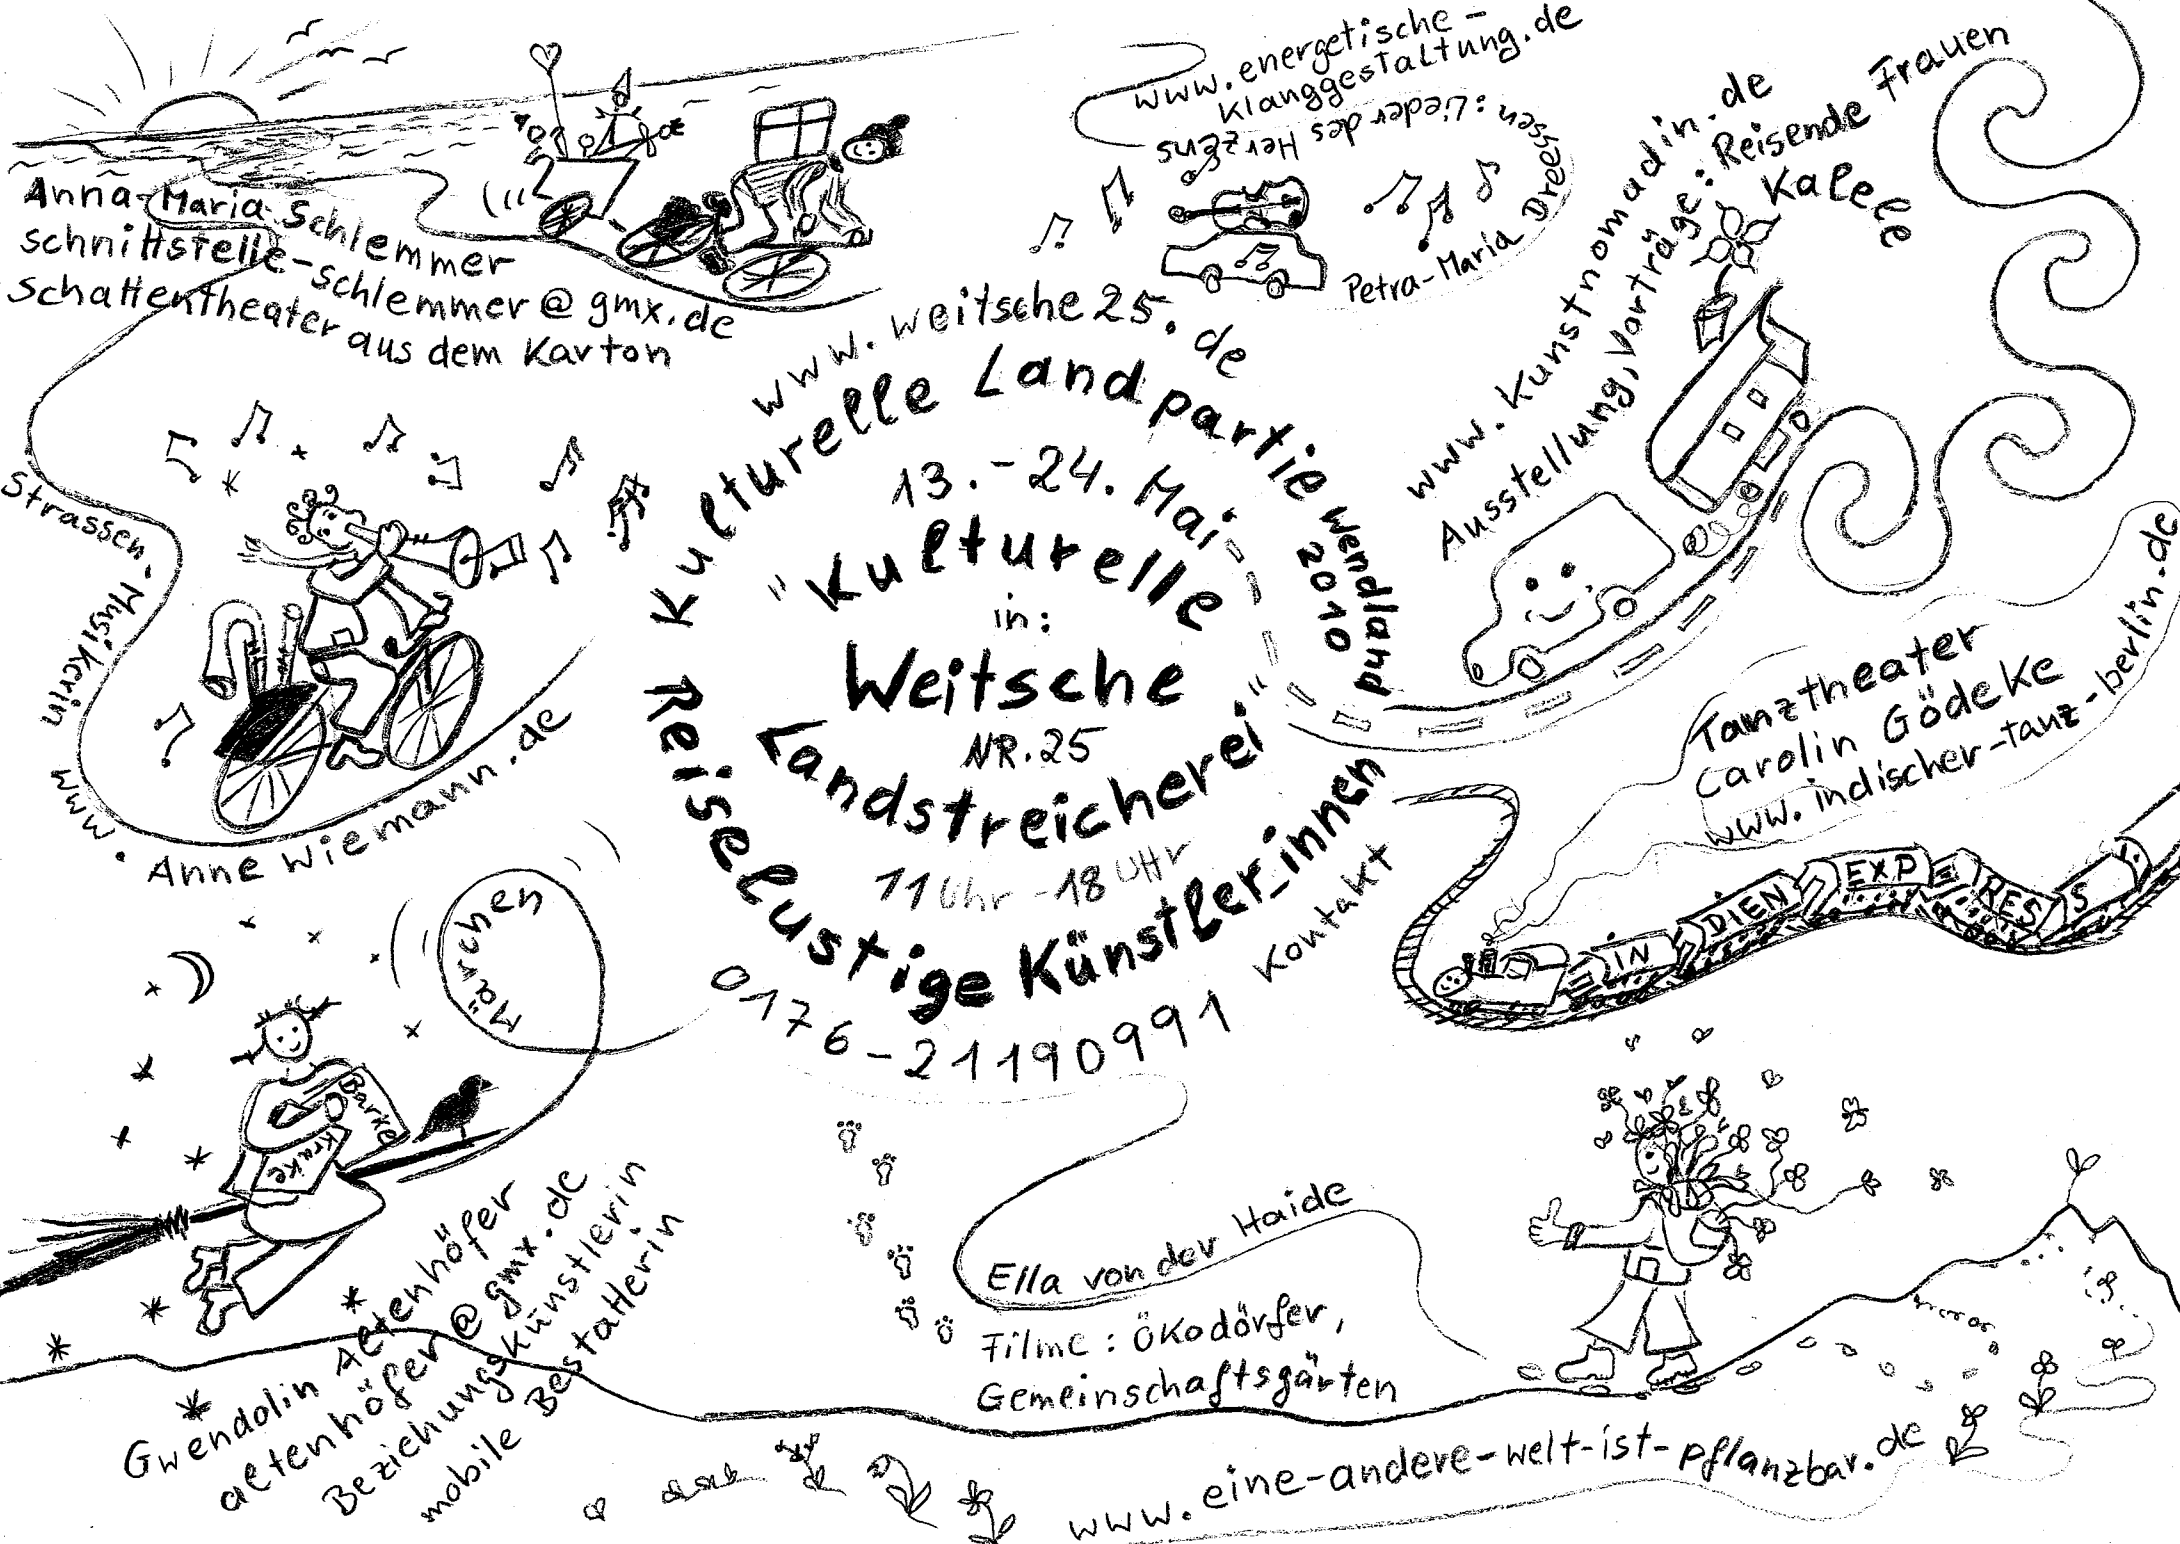 Anna-Maria Schlemmer
schnittstelle-schlemmer@gmx.de
Schattentheater aus dem Karton
www.energetische-
Klanggestaltung.de
Petra-Maria Dreessen: Lieder des HerzEns
www.Kunstnomadin.de
Ausstellung, Vorträge: Reisende Frauen
Kalelle
www.weitsche25.de
Kulturelle Landpartie Wendland
2010
13.-24. Mai
"Kulturelle
in:
Weitsche
NR. 25
Landstreicherei"
11 Uhr - 18 UHr
Reiselustige Künstler_innen
Kontakt
0176-21190991
Strassen-Musikerin
www.Anne Wiemann.de
Tanztheater
Carolin Gödeke
www.indischer-tanz-berlin.de
IN DIEN EXP RES S
Märchen
Barke
Krake
Gwendolin Altenhöfer
altenhöfer@gmx.de
Beziehungskünstlerin
mobile Bestatterin
Ella von der Haide
Filme: Ökodörfer,
Gemeinschaftsgärten
www.eine-andere-welt-ist-pflanzbar.de